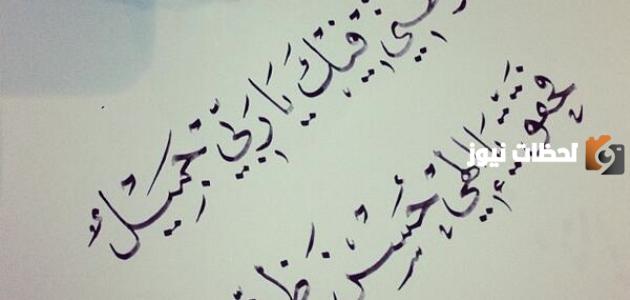 فيك يا ربي جميل
فحقق يا إلهي حسن
لحظات نيوز